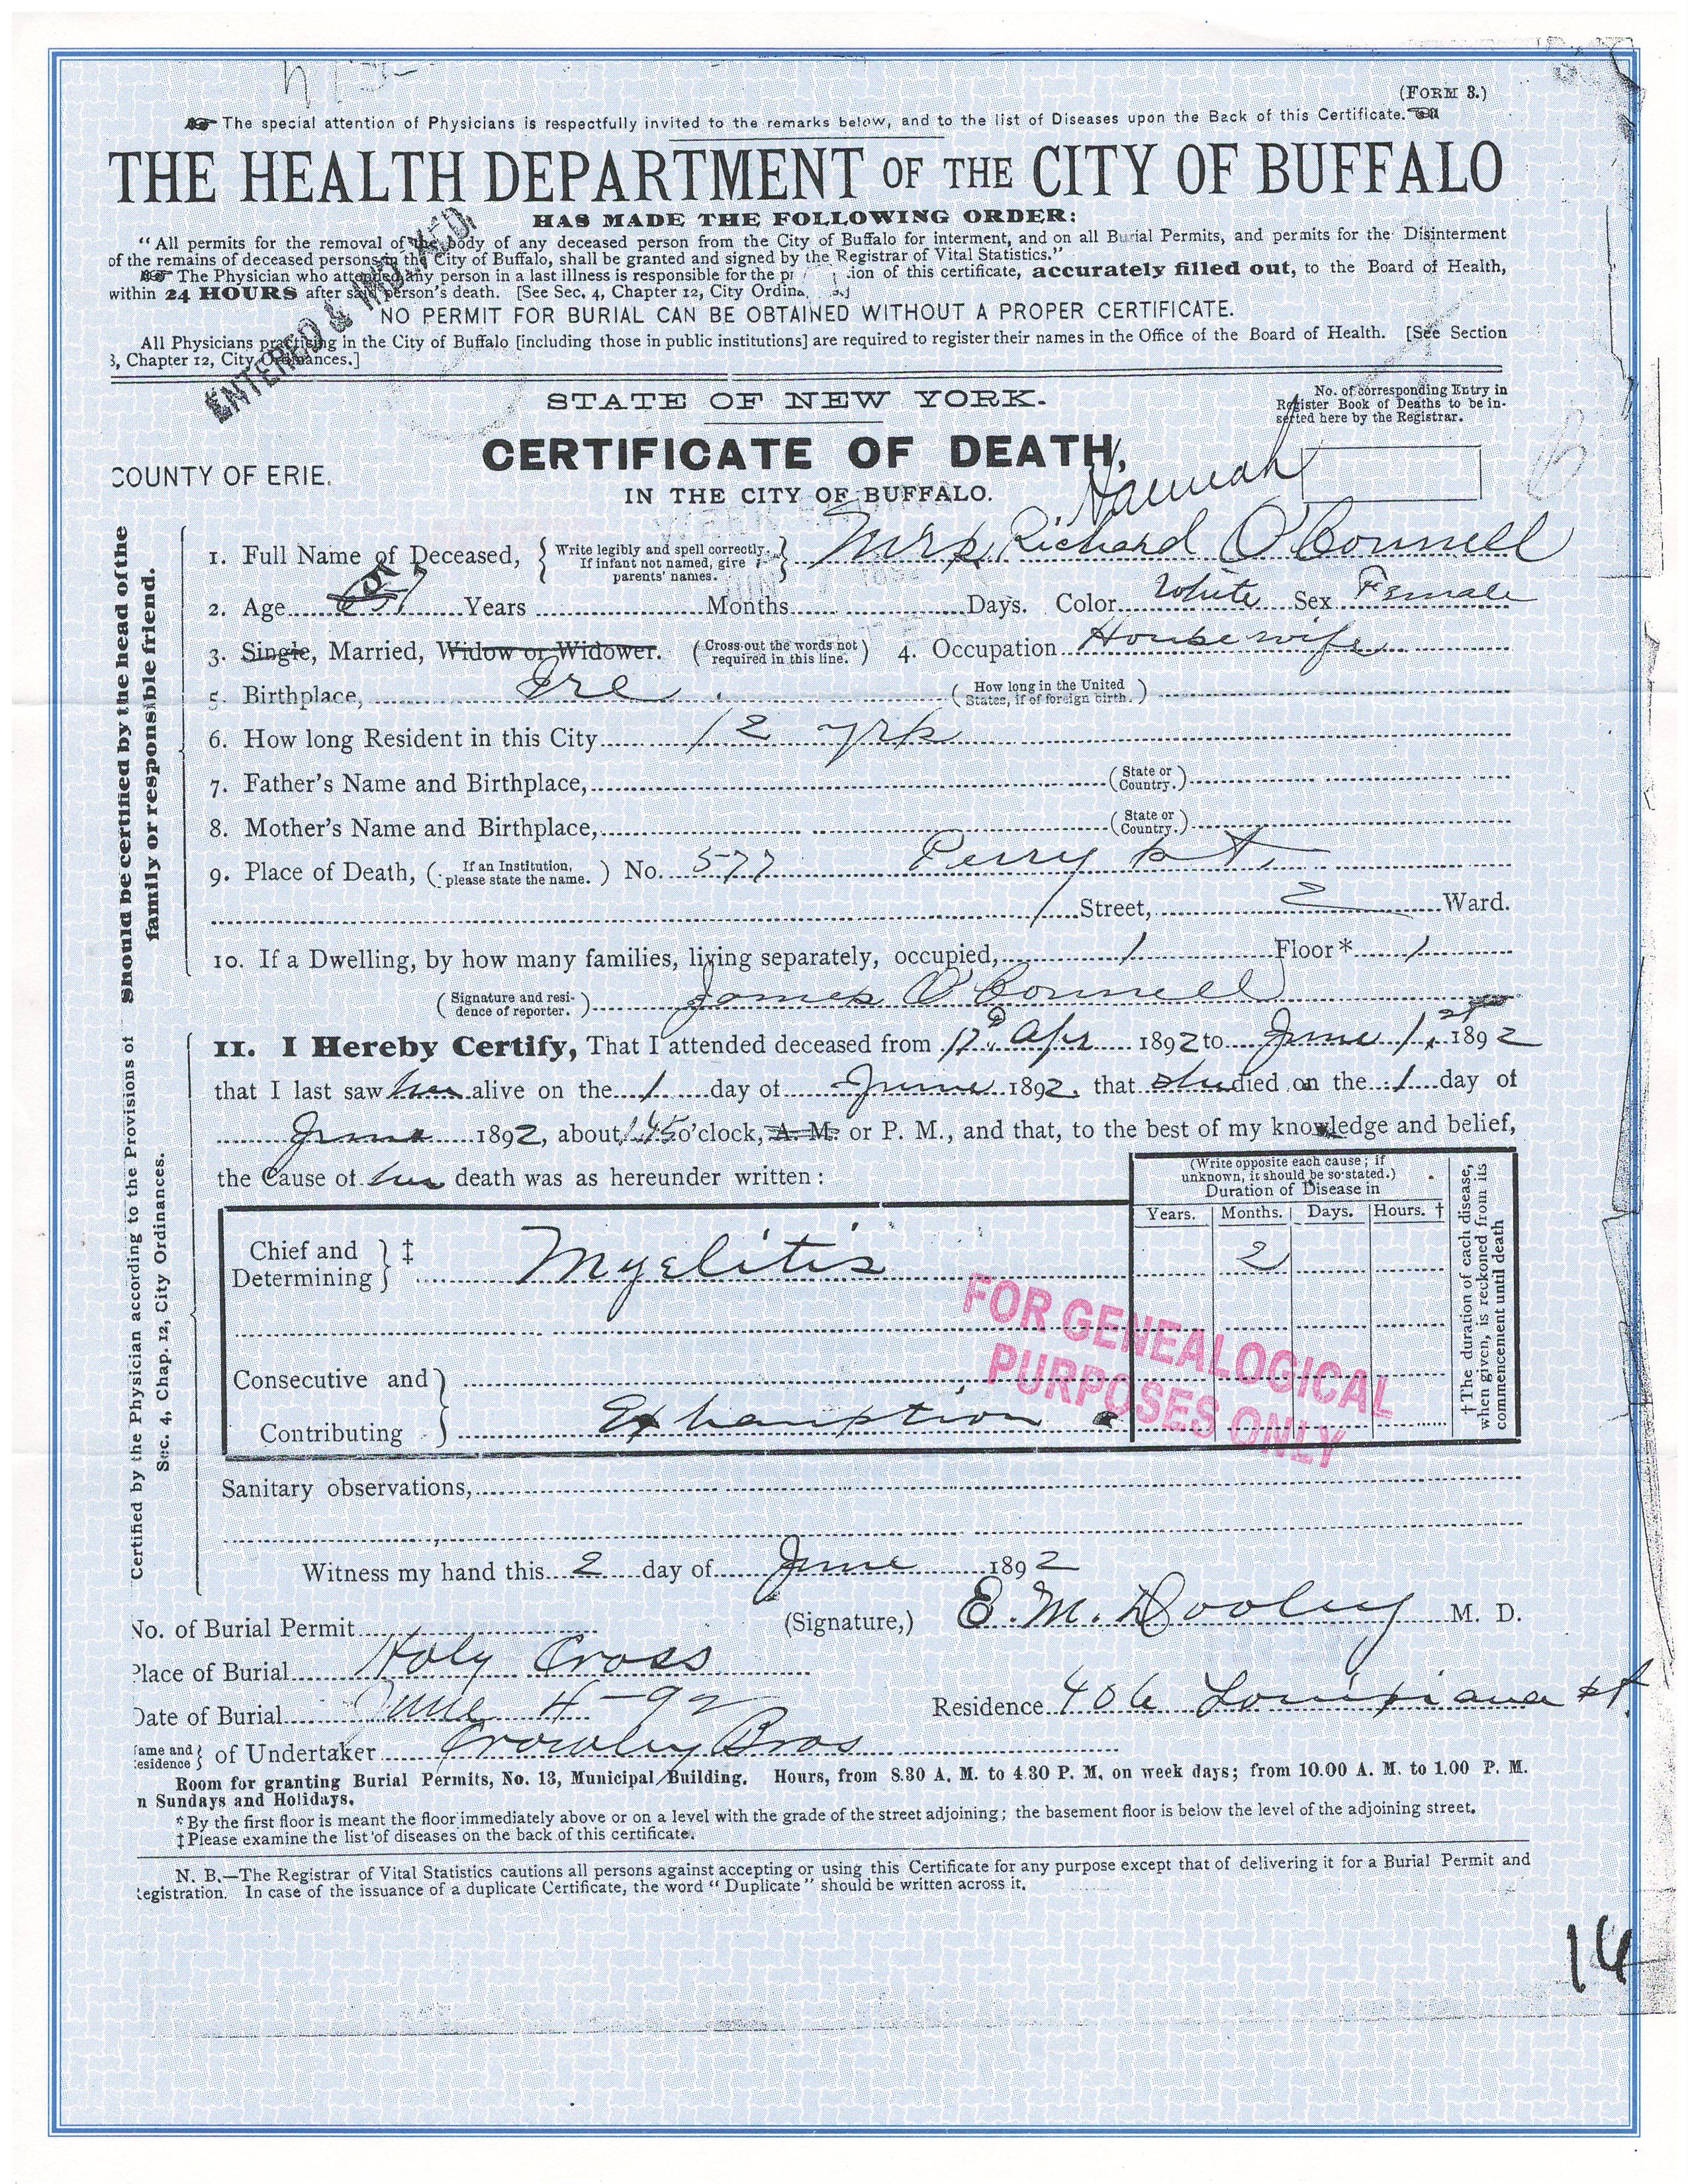 (FORM 3.)
The special attention of Physicians is respectfully invited to the remarks below, and to the list of Diseases upon the Back of this Certificate.
THE HEALTH DEPARTMENT OF THE CITY OF BUFFALO
HAS MADE THE FOLLOWING ORDER:
"All permits for the removal of the body of any deceased person from the City of Buffalo for interment, and on all Burial Permits, and permits for the Disinterment
of the remains of deceased persons in the City of Buffalo, shall be granted and signed by the Registrar of Vital Statistics."
The Physician who attended any person in a last illness is responsible for the ion of this certificate, accurately filled out, to the Board of Health,
within 24 HOURS after said person's death. [See Sec. 4, Chapter 12, City Ordina s.]
NO PERMIT FOR BURIAL CAN BE OBTAINED WITHOUT A PROPER CERTIFICATE.
All Physicians practicing in the City of Buffalo [including those in public institutions] are required to register their names in the Office of the Board of Health. [See Section
3, Chapter 12, City Ordinances.]
ENTERED & INDEXED
STATE OF NEW YORK.
No. of corresponding Entry in
Register Book of Deaths to be in-
serted here by the Registrar.
CERTIFICATE OF DEATH,
COUNTY OF ERIE.
IN THE CITY OF BUFFALO.
Hannah
1. Full Name of Deceased, { Write legibly and spell correctly. If infant not named, give parents' names. } Mrs. Richard O'Connell
2. Age 51 Years Months Days. Color White Sex Female
3. Single, Married, Widow or Widower. (Cross out the words not required in this line.) 4. Occupation Housewife
5. Birthplace, Ire. (How long in the United States, if of foreign birth.)
6. How long Resident in this City 12 yrs
7. Father's Name and Birthplace, (State or Country.)
8. Mother's Name and Birthplace, (State or Country.)
9. Place of Death, (If an Institution, please state the name.) No. 577 Perry st.
Street, Ward.
10. If a Dwelling, by how many families, living separately, occupied, 1 Floor* 1
(Signature and residence of reporter.) James O'Connell
should be certified by the head of the
family or responsible friend.
11. I Hereby Certify, That I attended deceased from 12 Apr 1892 to June 1st 1892
that I last saw her alive on the 1 day of June 1892, that she died on the 1 day of
June 1892, about 1.45 o'clock, A. M. or P. M., and that, to the best of my knowledge and belief,
the Cause of her death was as hereunder written:
(Write opposite each cause; if
unknown, it should be so stated.)
Duration of Disease in
Years. Months. Days. Hours. †
Chief and Determining } ‡ Myelitis 2
Consecutive and
Contributing } Exhaustion
† The duration of each disease,
when given, is reckoned from its
commencement until death
FOR GENEALOGICAL
PURPOSES ONLY
Certified by the Physician according to the Provisions of
Sec. 4, Chap. 12, City Ordinances.
Sanitary observations,
Witness my hand this 2 day of June 1892
No. of Burial Permit
(Signature,) E. M. Dooley M. D.
Place of Burial Holy Cross
Date of Burial June 4-92
Residence 406 Louisiana st.
ame and esidence } of Undertaker Crowley Bros
Room for granting Burial Permits, No. 13, Municipal Building. Hours, from 8.30 A. M. to 4.30 P. M. on week days; from 10.00 A. M. to 1.00 P. M.
n Sundays and Holidays.
* By the first floor is meant the floor immediately above or on a level with the grade of the street adjoining; the basement floor is below the level of the adjoining street.
‡ Please examine the list of diseases on the back of this certificate.
N. B.—The Registrar of Vital Statistics cautions all persons against accepting or using this Certificate for any purpose except that of delivering it for a Burial Permit and
egistration. In case of the issuance of a duplicate Certificate, the word "Duplicate" should be written across it.